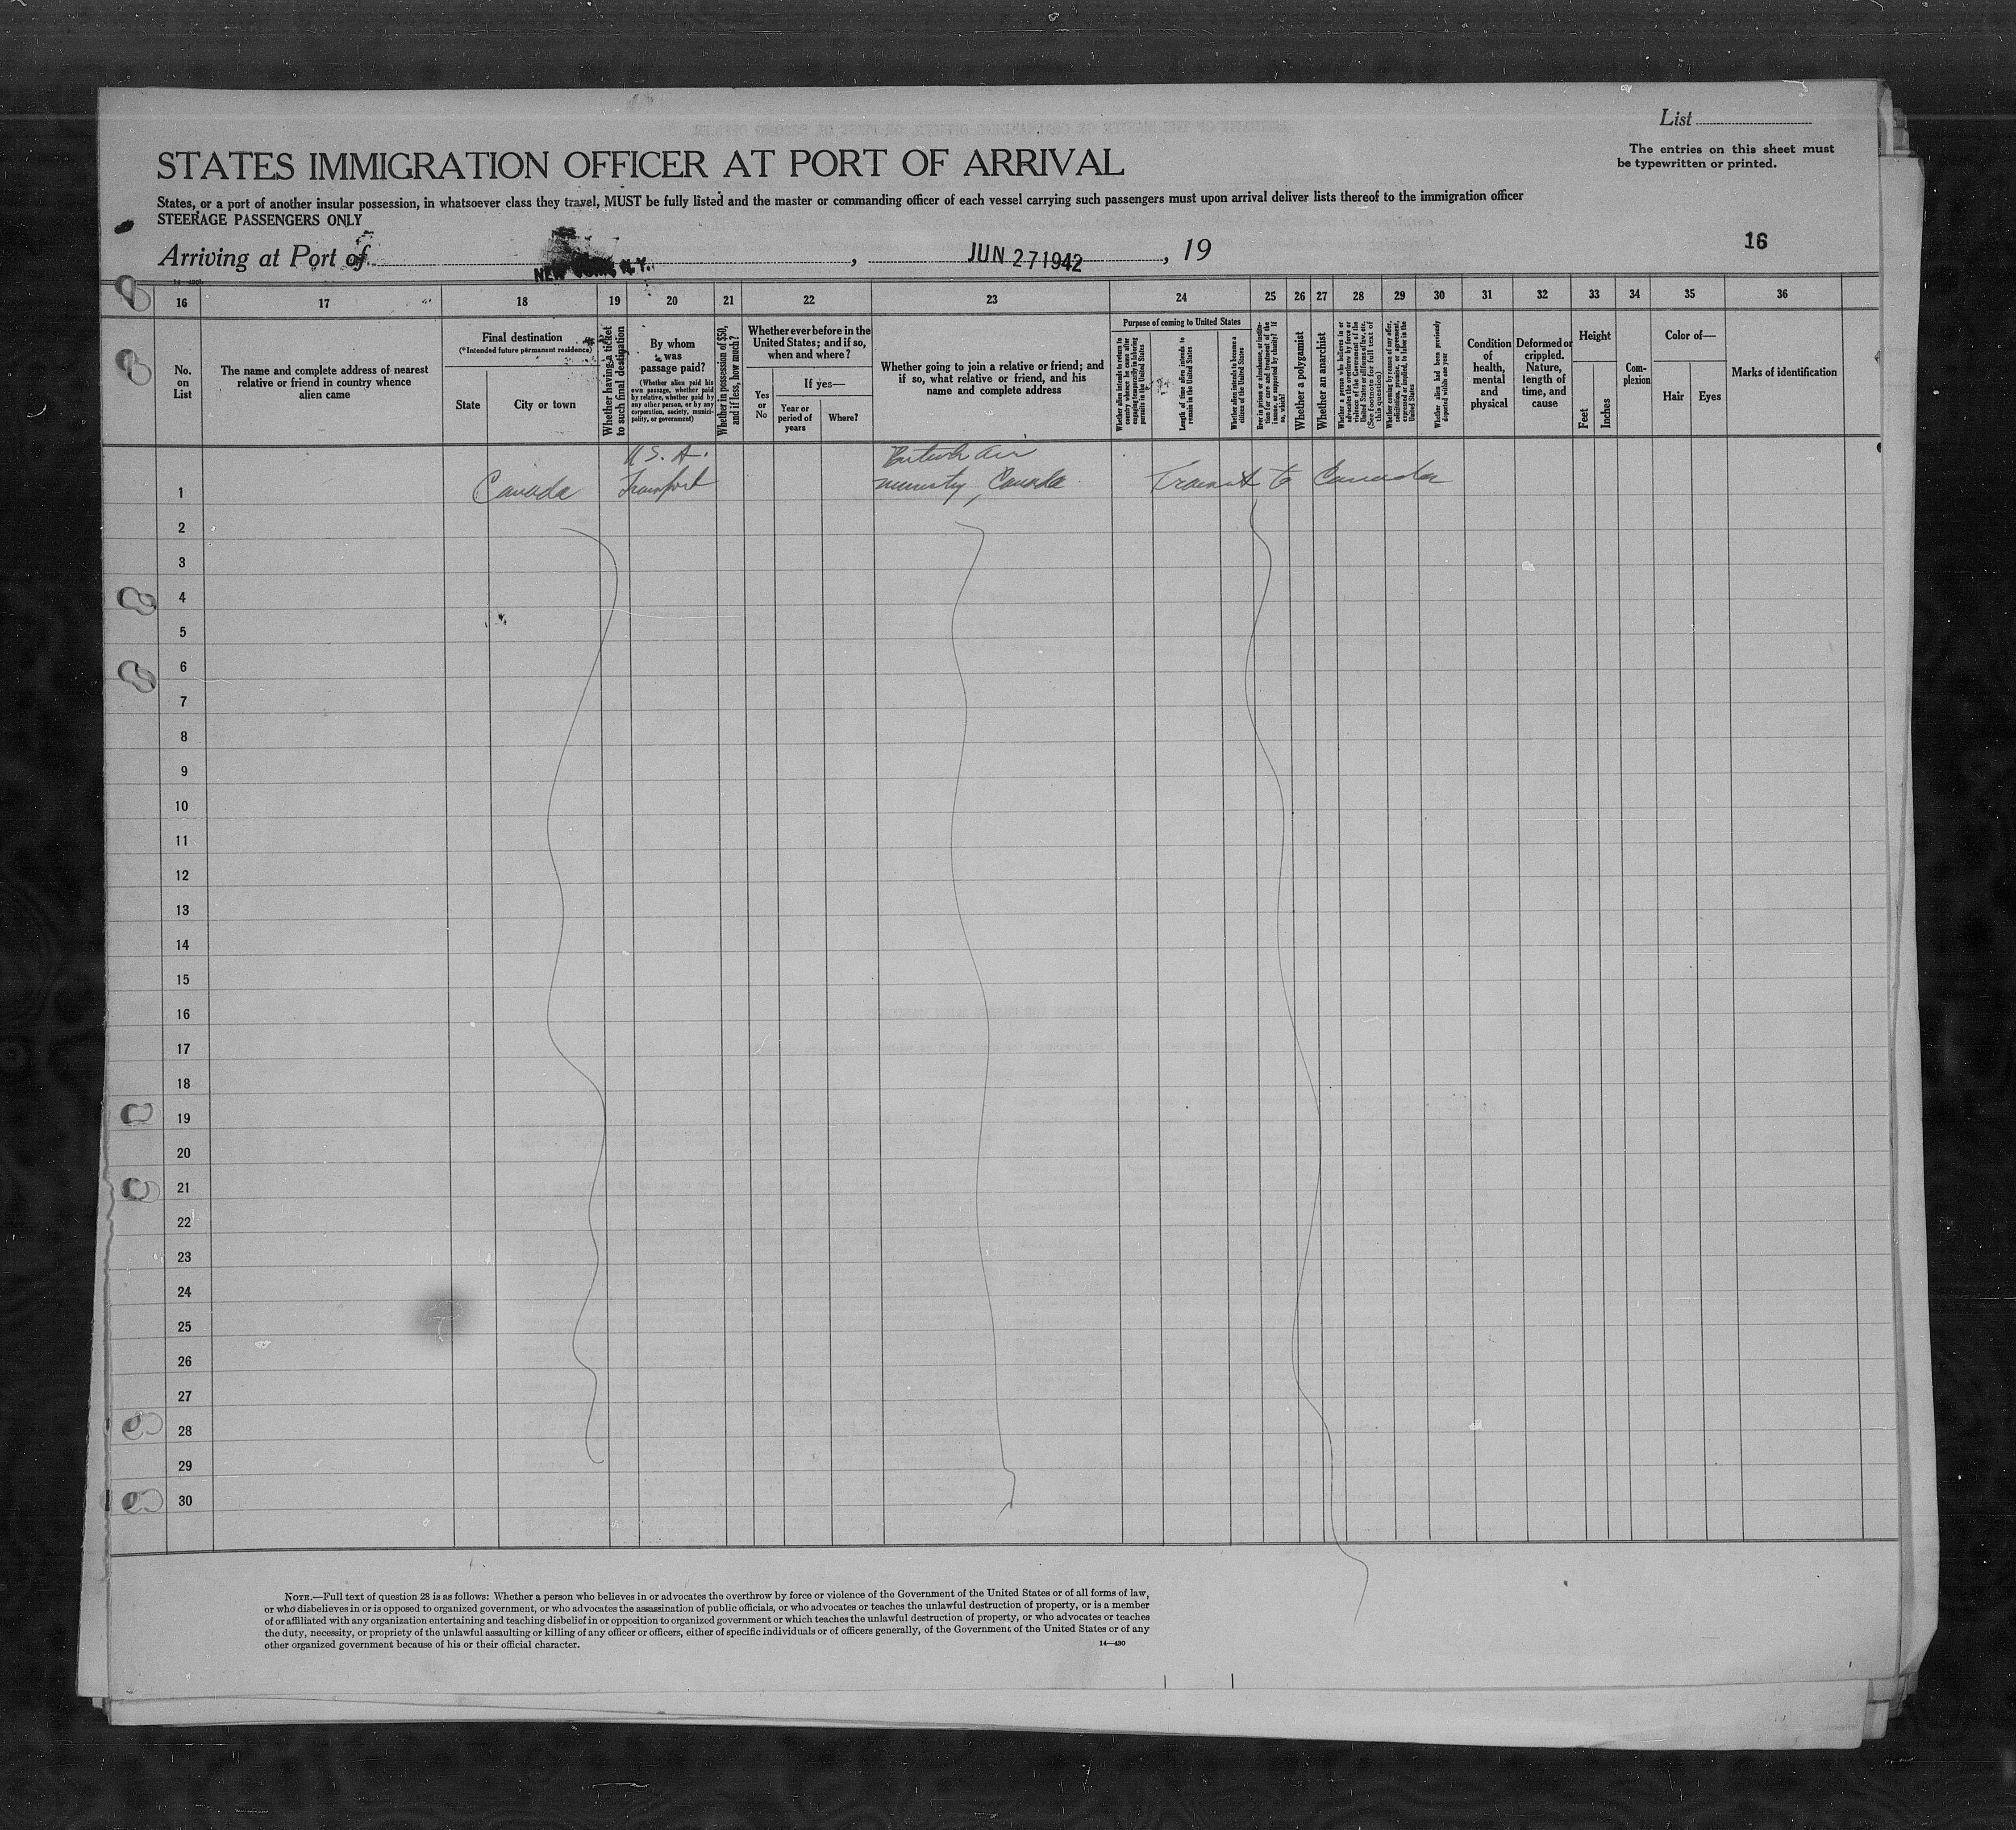 List
The entries on this sheet must
be typewritten or printed.
STATES IMMIGRATION OFFICER AT PORT OF ARRIVAL
States, or a port of another insular possession, in whatsoever class they travel, MUST be fully listed and the master or commanding officer of each vessel carrying such passengers must upon arrival deliver lists thereof to the immigration officer
STEERAGE PASSENGERS ONLY
Arriving at Port of NEW YORK N.Y. , JUN 27 1942 , 19
16
16 17 18 19 20 21 22 23 24 25 26 27 28 29 30 31 32 33 34 35 36
No.
on
List
The name and complete address of nearest
relative or friend in country whence
alien came
Final destination
(*Intended future permanent residence)
State
City or town
Whether having a ticket
to such final destination
By whom
was
passage paid?
(Whether alien paid his
own passage, whether paid
by relative, whether paid by
any other person, or by any
corporation, society, munici-
pality, or government)
Whether in possession of $50,
and if less, how much?
Whether ever before in the
United States; and if so,
when and where?
Yes
or
No
If yes—
Year or
period of
years
Where?
Whether going to join a relative or friend; and
if so, what relative or friend, and his
name and complete address
Purpose of coming to United States
Length of time alien intends to
remain in the United States
Whether alien intends to become a
citizen of the United States
Whether a polygamist
Whether an anarchist
Whether alien had been previously
deported within one year
Condition
of
health,
mental
and
physical
Deformed or
crippled.
Nature,
length of
time, and
cause
Height
Feet
Inches
Com-
plexion
Color of—
Hair
Eyes
Marks of identification
U.S.A.
Transport
Canada
British Air
Ministry, Canada
Transit to Canada
1
2
3
4
5
6
7
8
9
10
11
12
13
14
15
16
17
18
19
20
21
22
23
24
25
26
27
28
29
30
NOTE.—Full text of question 28 is as follows: Whether a person who believes in or advocates the overthrow by force or violence of the Government of the United States or of all forms of law,
or who disbelieves in or is opposed to organized government, or who advocates the assassination of public officials, or who advocates or teaches the unlawful destruction of property, or is a member
of or affiliated with any organization entertaining and teaching disbelief in or opposition to organized government or which teaches the unlawful destruction of property, or who advocates or teaches
the duty, necessity, or propriety of the unlawful assaulting or killing of any officer or officers, either of specific individuals or of officers generally, of the Government of the United States or of any
other organized government because of his or their official character.
14—430